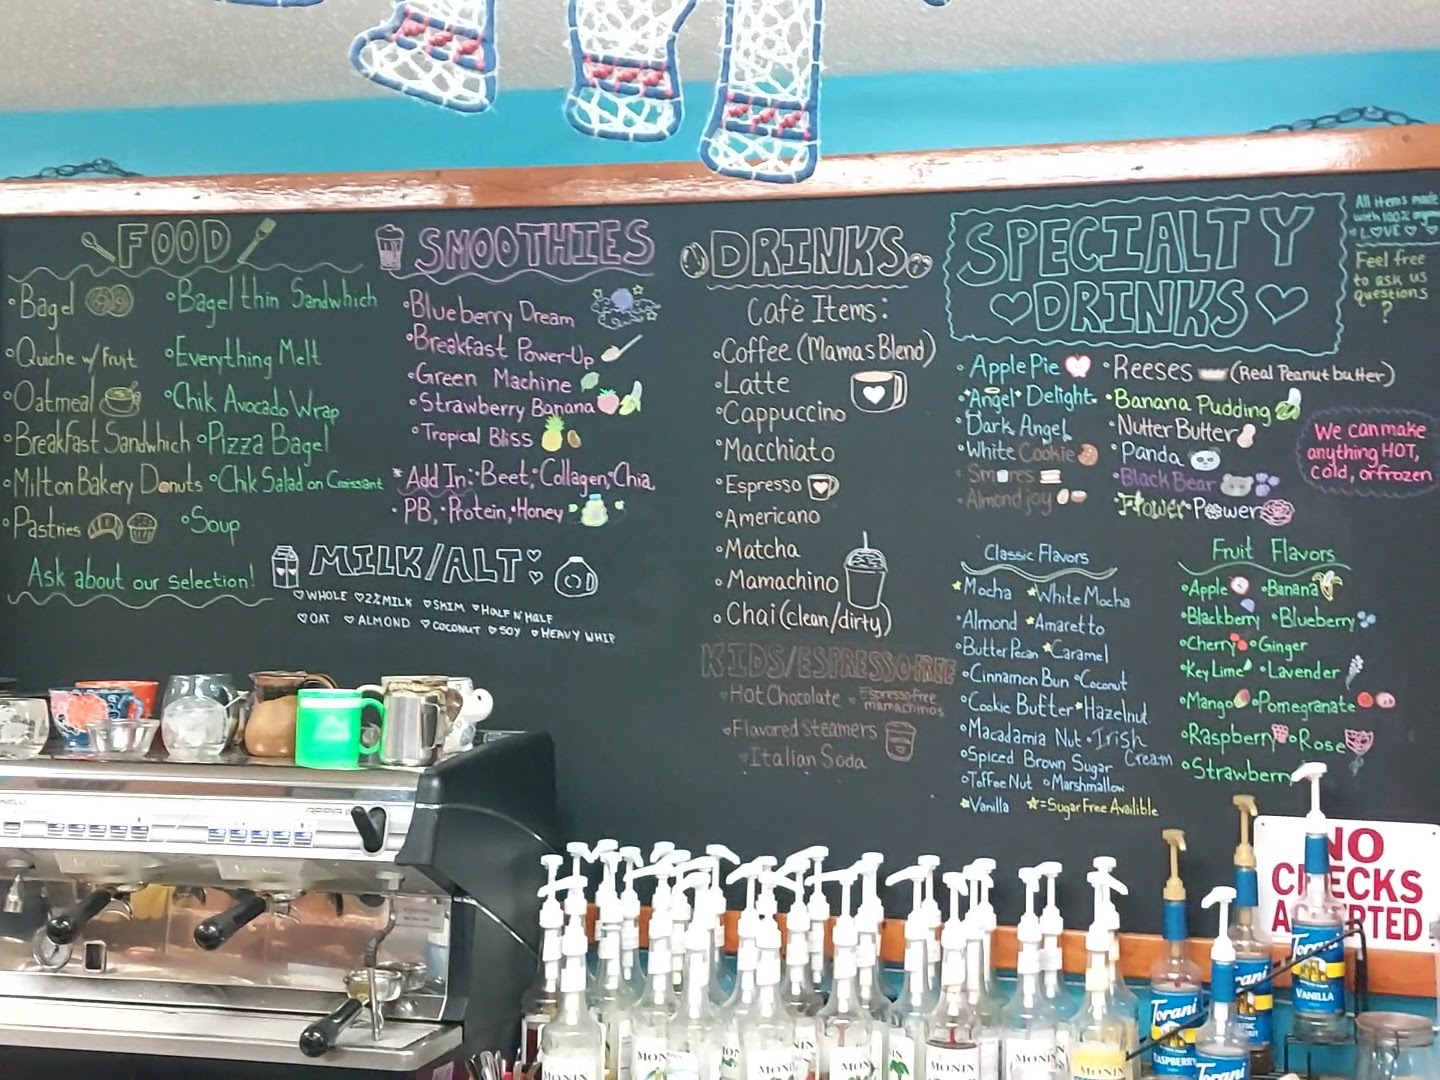 FOOD
•Bagel •Bagel thin Sandwhich
•Quiche w/ fruit •Everything Melt
•Oatmeal •Chik Avocado Wrap
•Breakfast Sandwhich •Pizza Bagel
•Milton Bakery Donuts •Chik Salad on Croissant
•Pastries •Soup
Ask about our selection!
SMOOTHIES
•Blueberry Dream
•Breakfast Power-Up
•Green Machine
•Strawberry Banana
•Tropical Bliss
*Add In: •Beet, •Collagen, •Chia,
•PB, •Protein, •Honey
MILK/ALT
♡WHOLE ♡2% MILK ♡SKIM ♡HALF N' HALF
♡OAT ♡ALMOND ♡COCONUT ♡SOY ♡HEAVY WHIP
DRINKS
Café Items:
•Coffee (Mamas Blend)
•Latte
•Cappuccino
•Macchiato
•Espresso
•Americano
•Matcha
•Mamachino
•Chai (clean/dirty)
KIDS/ESPRESSO-FREE
•Hot Chocolate •Espresso free mamachinos
•Flavored Steamers
•Italian Soda
SPECIALTY
♡DRINKS♡
•Apple Pie •Reeses (Real Peanut butter)
•Angel Delight •Banana Pudding
•Dark Angel •Nutter Butter
•White Cookie •Panda
•Smores •Black Bear
•Almond joy •Flower Power
All items made
with 100% organic
♡LOVE♡♡
Feel free
to ask us
questions
?
We can make
anything HOT,
cold, or frozen
Classic Flavors
★Mocha ★White Mocha
•Almond ★Amaretto
•Butter Pecan ★Caramel
•Cinnamon Bun •Coconut
•Cookie Butter ★Hazelnut
•Macadamia Nut •Irish Cream
•Spiced Brown Sugar
•Toffee Nut •Marshmallow
★Vanilla ★=Sugar Free Availible
Fruit Flavors
•Apple •Banana
•Blackberry •Blueberry
•Cherry •Ginger
•Key Lime •Lavender
•Mango •Pomegranate
•Raspberry •Rose
•Strawberry
NO
CHECKS
ACCEPTED
Torani
VANILLA
Torani
RASPBERRY
Torani
MONIN
MONIN
MONIN
MONIN
MONIN
MONIN
MONIN